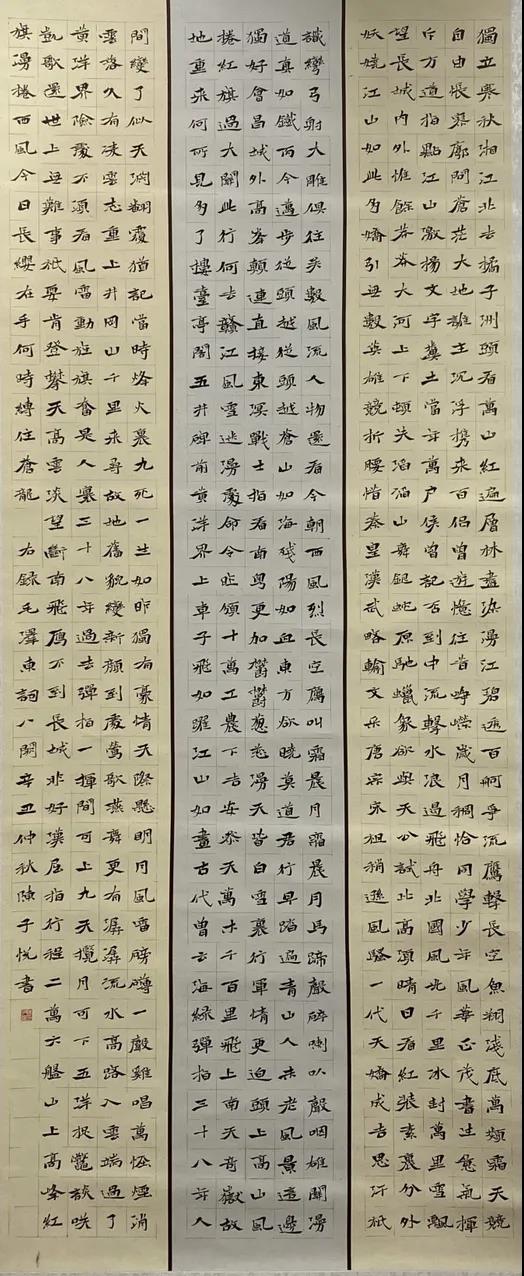 獨立寒秋湘江北去橘子洲頭看萬山紅遍層林盡染漫江碧透百舸爭流鷹擊長空魚翔淺底萬類霜天競
自由悵寥廓問蒼茫大地誰主沉浮携來百侶曾遊憶往昔崢嶸歲月稠恰同學少年風華正茂書生意氣揮
斥方遒指點江山激揚文字糞土當年萬户侯曾記否到中流擊水浪遏飛舟北國風光千里冰封萬里雪飄
望長城内外惟餘莽莽大河上下頓失滔滔山舞銀蛇原馳蠟象欲與天公試比高須晴日看紅裝素裹分外
妖嬈江山如此多嬌引無數英雄競折腰惜秦皇漢武略輸文采唐宗宋祖稍遜風騷一代天驕成吉思汗衹
識彎弓射大雕俱往矣數風流人物還看今朝西風烈長空鴈叫霜晨月霜晨月馬蹄聲碎喇叭聲咽雄關漫
道真如鐵而今邁步從頭越從頭越蒼山如海殘陽如血東方欲曉莫道君行早踏遍青山人未老風景這邊
獨好會昌城外高峯顛連直接東溟戰士指看南粵更加鬱鬱葱葱漫天皆白雪裏行軍情更迫頭上高山風
捲紅旗過大關此行何去贛江風雪迷漫處命令昨頒十萬工農下吉安參天萬木千百里飛上南天奇嶽故
地重來何所見多了樓臺亭閣五井碑前黄洋界上車子飛如躍江山如畫古代曾云海緑彈指三十八年人
間變了似天淵翻覆猶記當時烽火裏九死一生如昨獨有豪情天際懸明月風雷磅礴一聲雞唱萬怪煙消
雲落久有凌雲志重上井岡山千里來尋故地舊貌變新顔到處鶯歌燕舞更有潺潺流水高路入雲端過了
黄洋界險處不須看風雷動旌旗奮是人寰三十八年過去彈指一揮間可上九天攬月可下五洋捉鱉談笑
凱歌還世上無難事衹要肯登攀天高雲淡望斷南飛鴈不到長城非好漢屈指行程二萬六盤山上高峰紅
旗漫捲西風今日長纓在手何時縛住蒼龍 右録毛澤東詞八闋辛丑仲秋陳子悦書